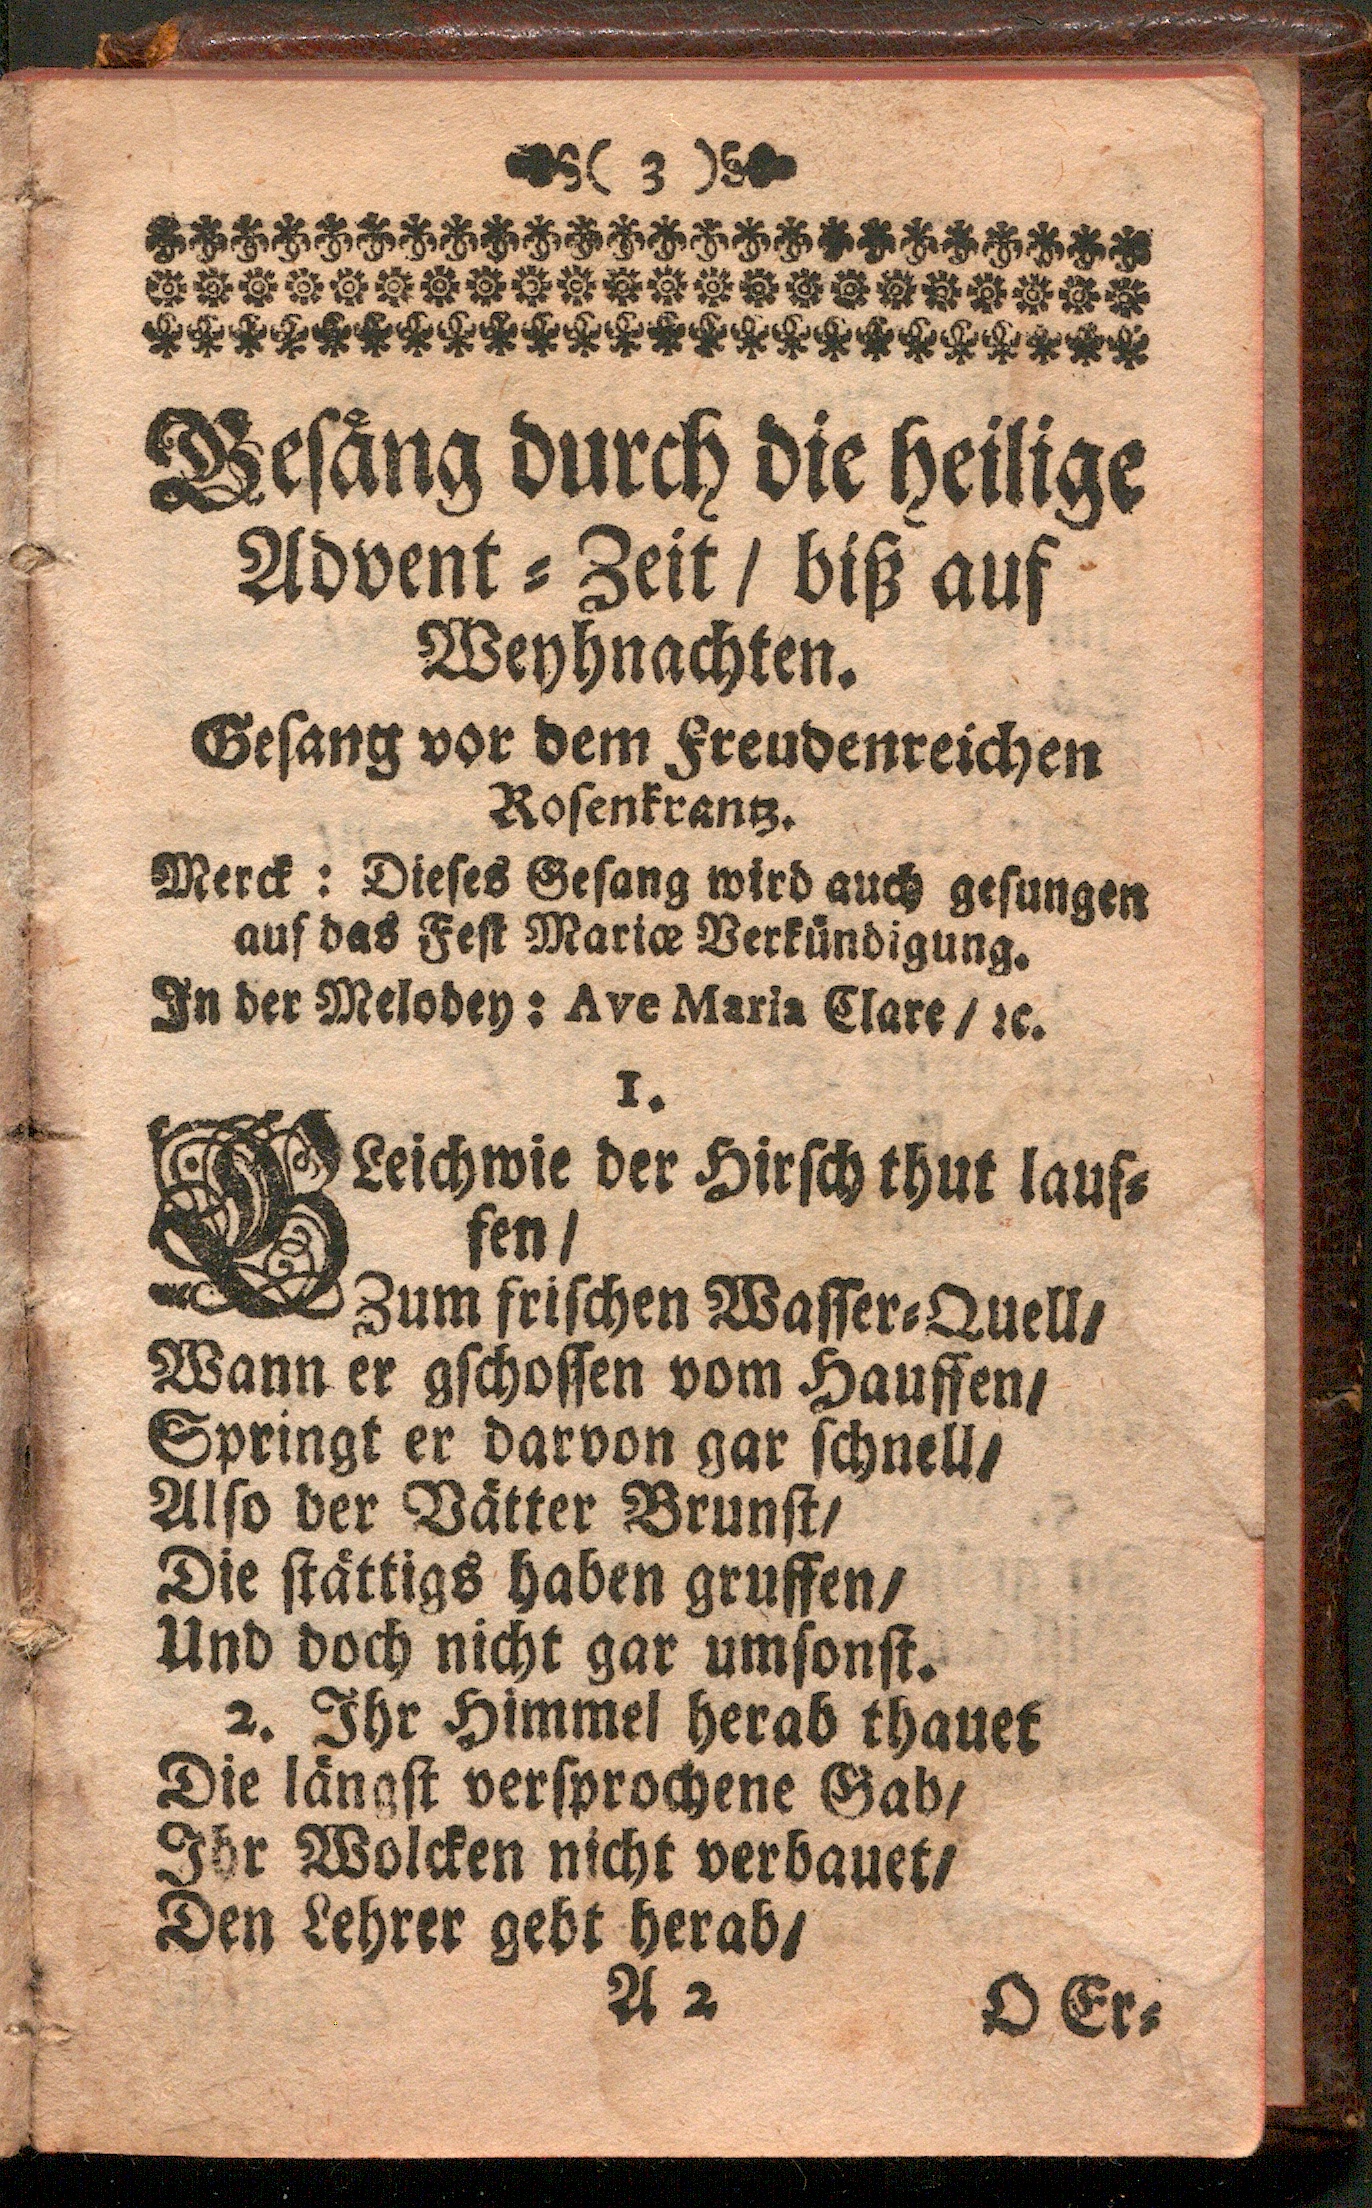 ( 3 )
Gesäng durch die heilige
Advent-Zeit / biß auf
Weyhnachten.
Gesang vor dem Freudenreichen
Rosenkrantz.
Merck: Dieses Gesang wird auch gesungen
auf das Fest Mariæ Verkündigung.
In der Melodey: Ave Maria Clare / ꝛc.
1.
GLeichwie der Hirsch thut lauf-
fen /
Zum frischen Wasser-Quell /
Wann er gschossen vom Hauffen /
Springt er darvon gar schnell /
Also der Vätter Brunst /
Die stättigs haben gruffen /
Und doch nicht gar umsonst.
2. Ihr Himmel herab thauet
Die längst versprochene Gab /
Ihr Wolcken nicht verbauet /
Den Lehrer gebt herab /
A 2 O Er-